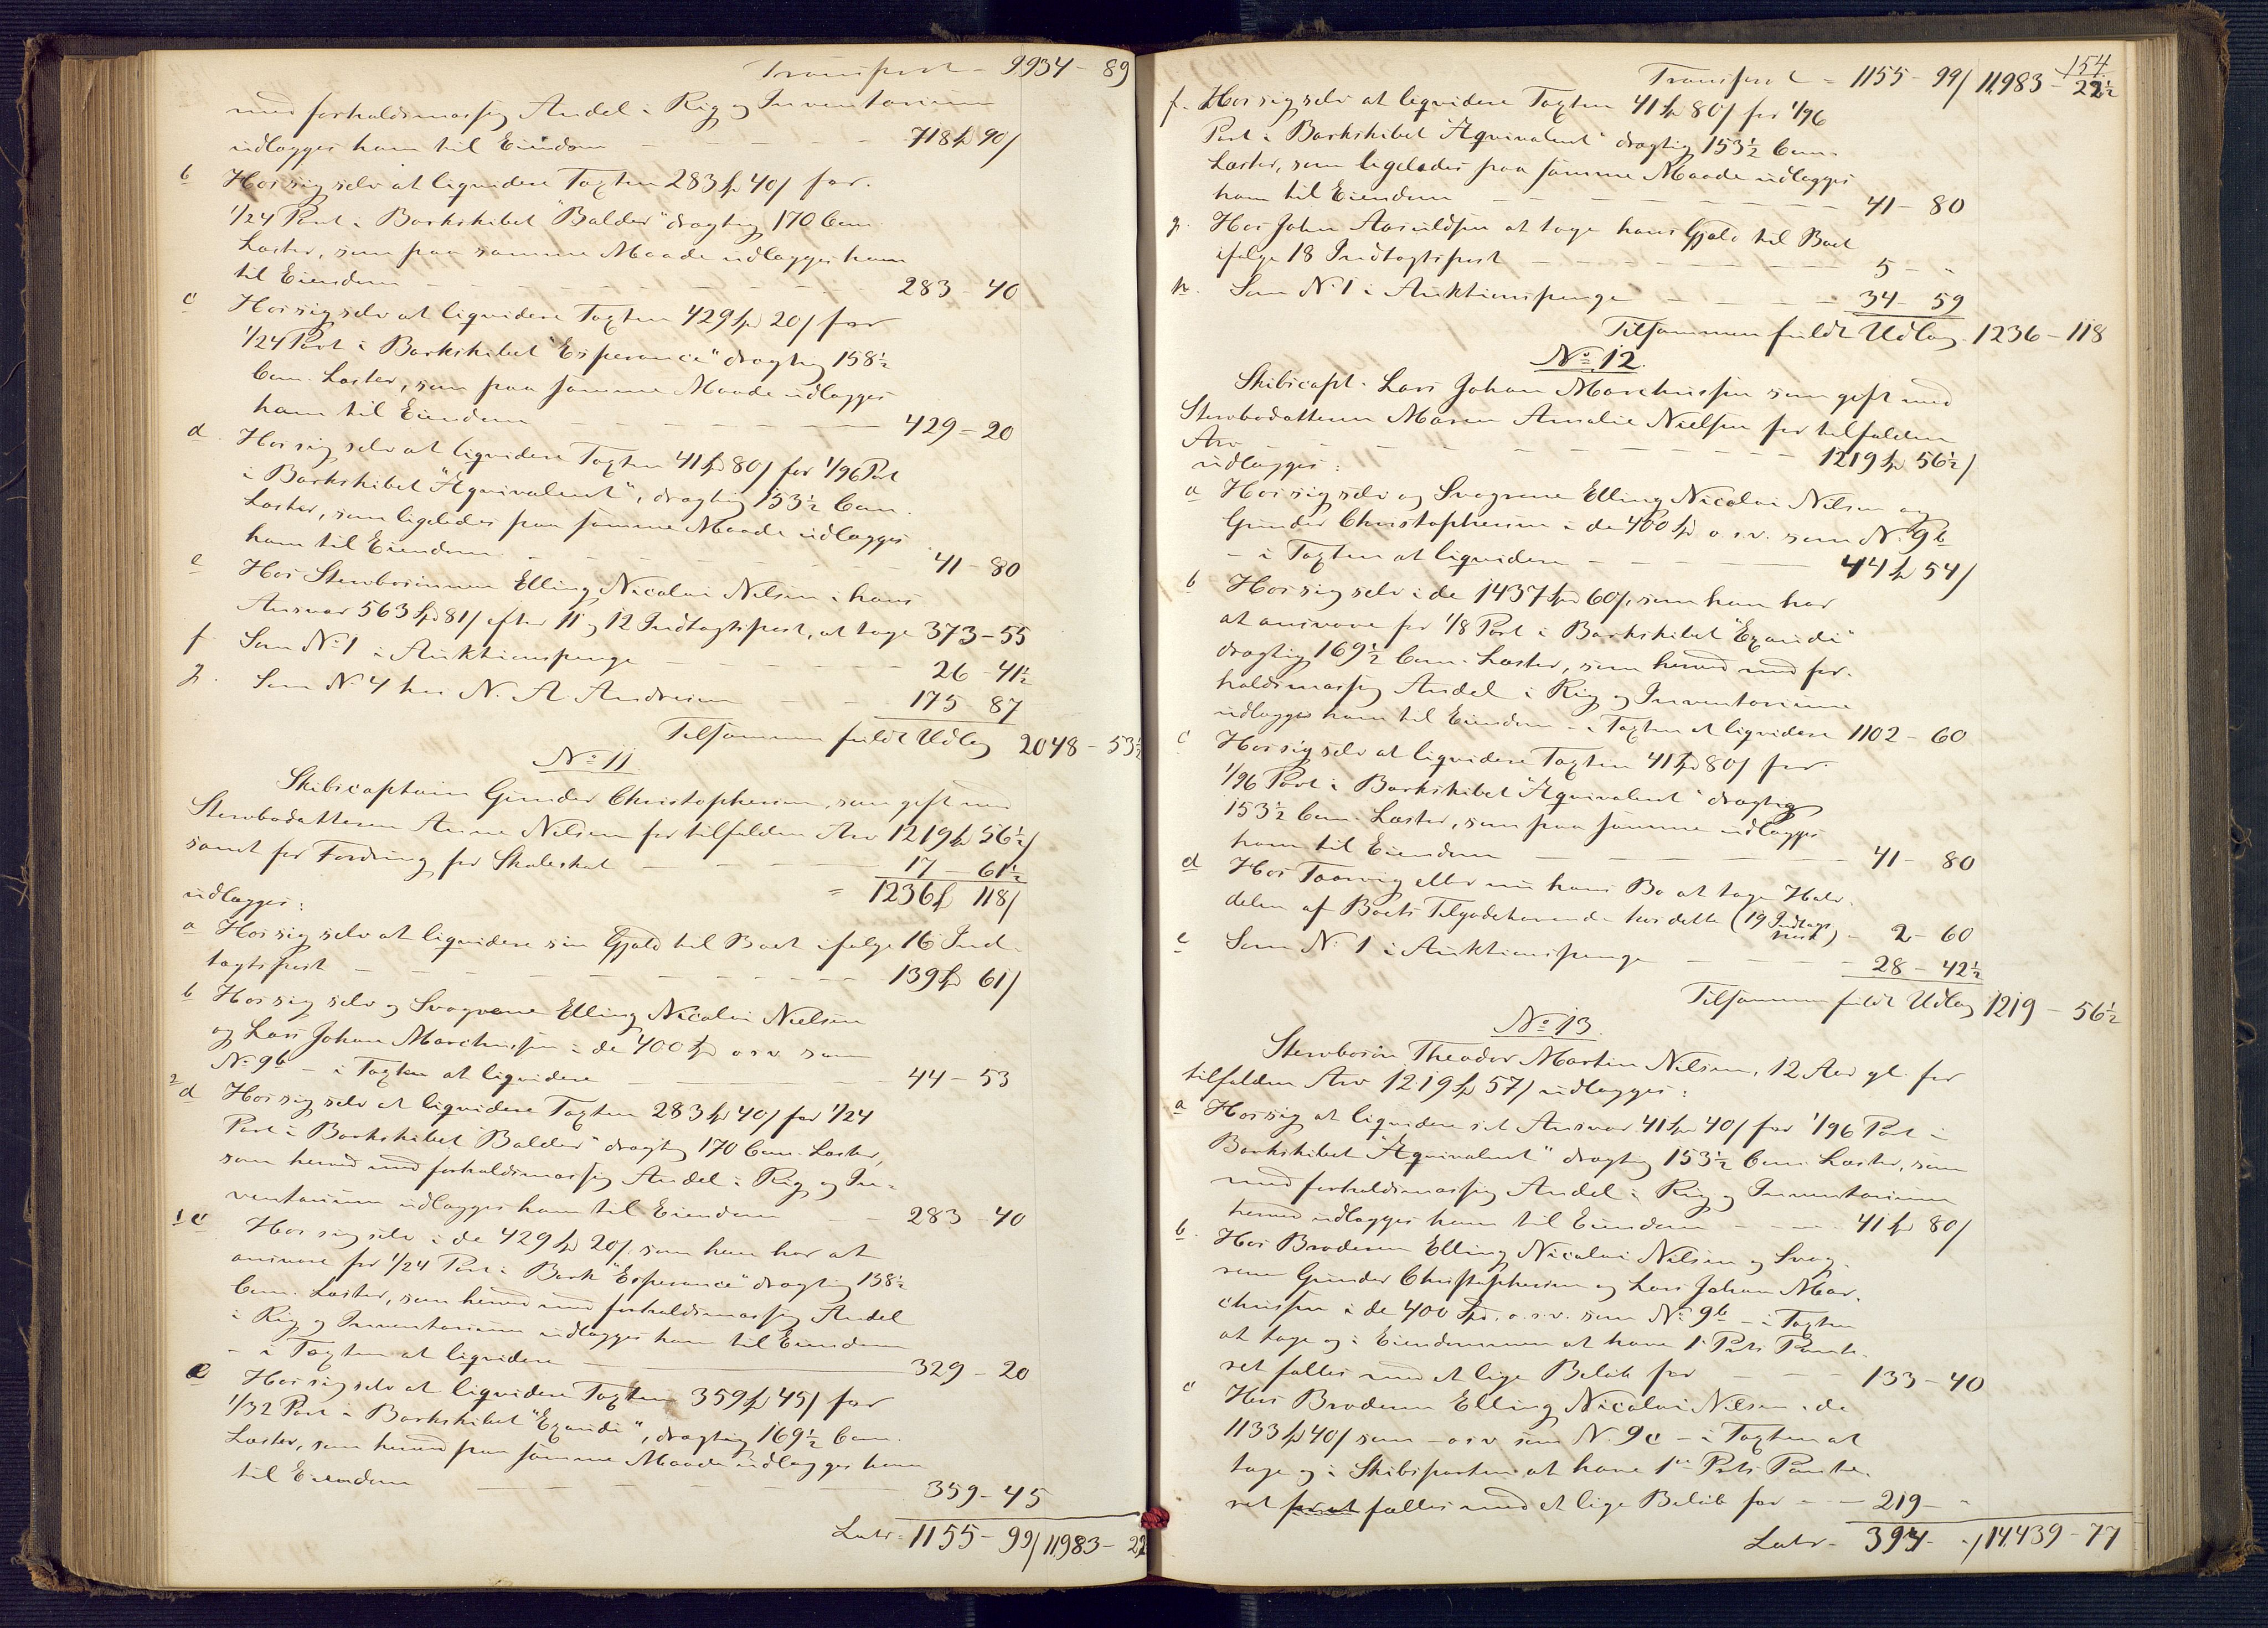 Transport - 9934 - 89
med forholdsmæssig Andel i Rig og Inventarium
udlægges ham til Eiendom - - - - - 718 Spd 90 /
b Hos sig selv at liqvidere Taxten 283 Spd 40 / for
1/24 Part i Barkskibet "Balder" drægtig 170 Com.
Læster, som paa samme Maade udlægges ham
til Eiendom - - - - - - - - 283 - 40
c Hos sig selv at liqvidere Taxten 429 Spd 20 / for
1/24 Part i Barkskibet "Esperance" drægtig 158½
Com. Læster, som paa samme Maade udlægges
ham til Eiendom - - - - - - - 429 - 20
d Hos sig selv at liqvidere Taxten 41 Spd 80 / for 1/96 Part
i Barkskibet "Æqvivalent", drægtig 153½ Com.
Læster, som ligeledes paa samme Maade udlægges
ham til Eiendom - - - - - - - 41 - 80
e Hos Stervbosønnen Elling Nicolai Nilsen i hans
Ansvar 563 Spd 81 / efter 11 og 12 Indtægtspost, at tage 373 - 55
f Som No 1 i Auktionspenge - - - - - - 26 - 41½
g. Som No 4 hos N. A. Andresen - - - 175 - 87
Tilsammen fuldt Udlæg 2048 - 53½
No 11
Skibscaptain Gunder Christophersen, som gift med
Stervbodatteren Anne Nilsen for tilfalden Arv 1219 Spd 56½ /
samt for Fordring for Skoleskat - - - - 17 - 61½
= 1236 Spd 118 /
udlægges:
a Hos sig selv at liqvidere sin Gjæld til Boet ifølge 16 Ind-
tægtspost - - - - - - - - - 139 Spd 61 /
b Hos sig selv og Svogrene Elling Nicolai Nielsen
og Lars Johan Marchussen i de 400 Spd o s v som
No 9b - i Taxten at liqvidere - - - - 44 - 53
2 d Hos sig selv at liqvidere Taxten 283 Spd 40 / for 1/24
Part i Barkskibet "Balder" drægtig 170 Com. Læster,
som herved med forholdsmæssig Andel i Rig og In-
ventarium udlægges ham til Eiendom - - 283 - 40
1 c Hos sig selv i de 429 Spd 20 / som han har at
ansvare for 1/24 Part i Bark "Esperance" drægtig 158½
Com. Læster, som herved med forholdsmæssig Andel
i Rig og Inventarium udlægges ham til Eiendom
- i Taxten at liqvidere - - - - 329 - 20
e Hos sig selv at liqvidere Taxten 359 Spd 45 / for
1/32 Part i Barkskibet "Exaudi", drægtig 169½ Com.
Læster, som herved paa samme Maade udlægges ham
til Eiendom - - - - - - - 359 - 45
Latr = 1155 - 99 / 11983 - 22
154.
Transport = 1155 - 99 / 11983 - 22½
f. Hos sig selv at liqvidere Taxten 41 Spd 80 / for 1/96
Part i Barkskibet "Æqvivalent" drægtig 153½ Com.
Læster, som ligeledes paa samme Maade udlægges
ham til Eiendom - - - - - - - 41 - 80
g. Hos John Aasuldsen at tage hans Gjæld til Boet
ifølge 18 Indtægtspost - - - - - - - 5 - "
h. Som No 1 i Auktionspenge - - - - - 34 - 59
Tilsammen fuldt Udlæg 1236 - 118
No 12.
Skibscapt. Lars Johan Marchussen som gift med
Stervbodatteren Maren Amalie Nielsen for tilfalden
Arv - - - - - - - - - - 1219 Spd 56½ /
udlægges:
a Hos sig selv og Svogrene Elling Nicolai Nilsen og
Gunder Christophersen i de 400 Spd o. s. v. som No 9b
- i Taxten at liqvidere - - - - - 44 Spd 54 /
b Hos sig selv i de 1437 Spd 60 /, som han har
at ansvare for 1/8 Part i Barkskibet "Exaudi"
drægtig 169½ Com. Læster, som herved med for-
holdsmæssig Andel i Rig og Inventarium
udlægges ham til Eiendom - i Taxten at liqvidere 1102 - 60
c Hos sig selv at liqvidere Taxten 41 Spd 80 / for
1/96 Part i Barkskibet "Æqvivalent" drægtig
153½ Com. Læster, som paa samme udlægges
ham til Eiendom - - - - - - 41 - 80
d Hos Taarvig eller nu hans Bo at tage Halv-
delen af Boets Tilgodehavende hos dette (19 Indtægts
post) - 2 - 60
e Som No 1 i Auktionspenge - - - - - 28 - 42½
Tilsammen fuldt Udlæg 1219 - 56½
No 13.
Stervbosøn Theodor Martin Nilsen, 12 Aar gl. for
tilfalden Arv 1219 Spd 57 / udlægges:
a Hos sig at liqvidere sit Ansvar 41 Spd 40 / for 1/96 Part i
Barkskibet "Æqvivalent" drægtig 153½ Com. Læster, som
med forholdsmæssig Andel i Rig og Inventarium
herved udlægges ham til Eiendom - - - 41 Spd 80 /
b. Hos Broderen Elling Nicolai Nilsen og Svog-
rene Gunder Christophersen og Lars Johan Mar-
chussen i de 400 Spd. o. s. v. som No 9b - i Taxten
at tage og i Eiendommen at have 1 Pr. Pante-
ret fælles med et lige Beløb for - - - 133 - 40
c Hos Broderen Elling Nicolai Nilsen i de
1133 Spd 40 / som - o s v som No 9c - i Taxten at
tage og i Skibsparten at have 1ste Prts Pante-
ret for at fælles med et lige Beløb for - - 219 - "
Latr - 394 - " / 14439 - 77